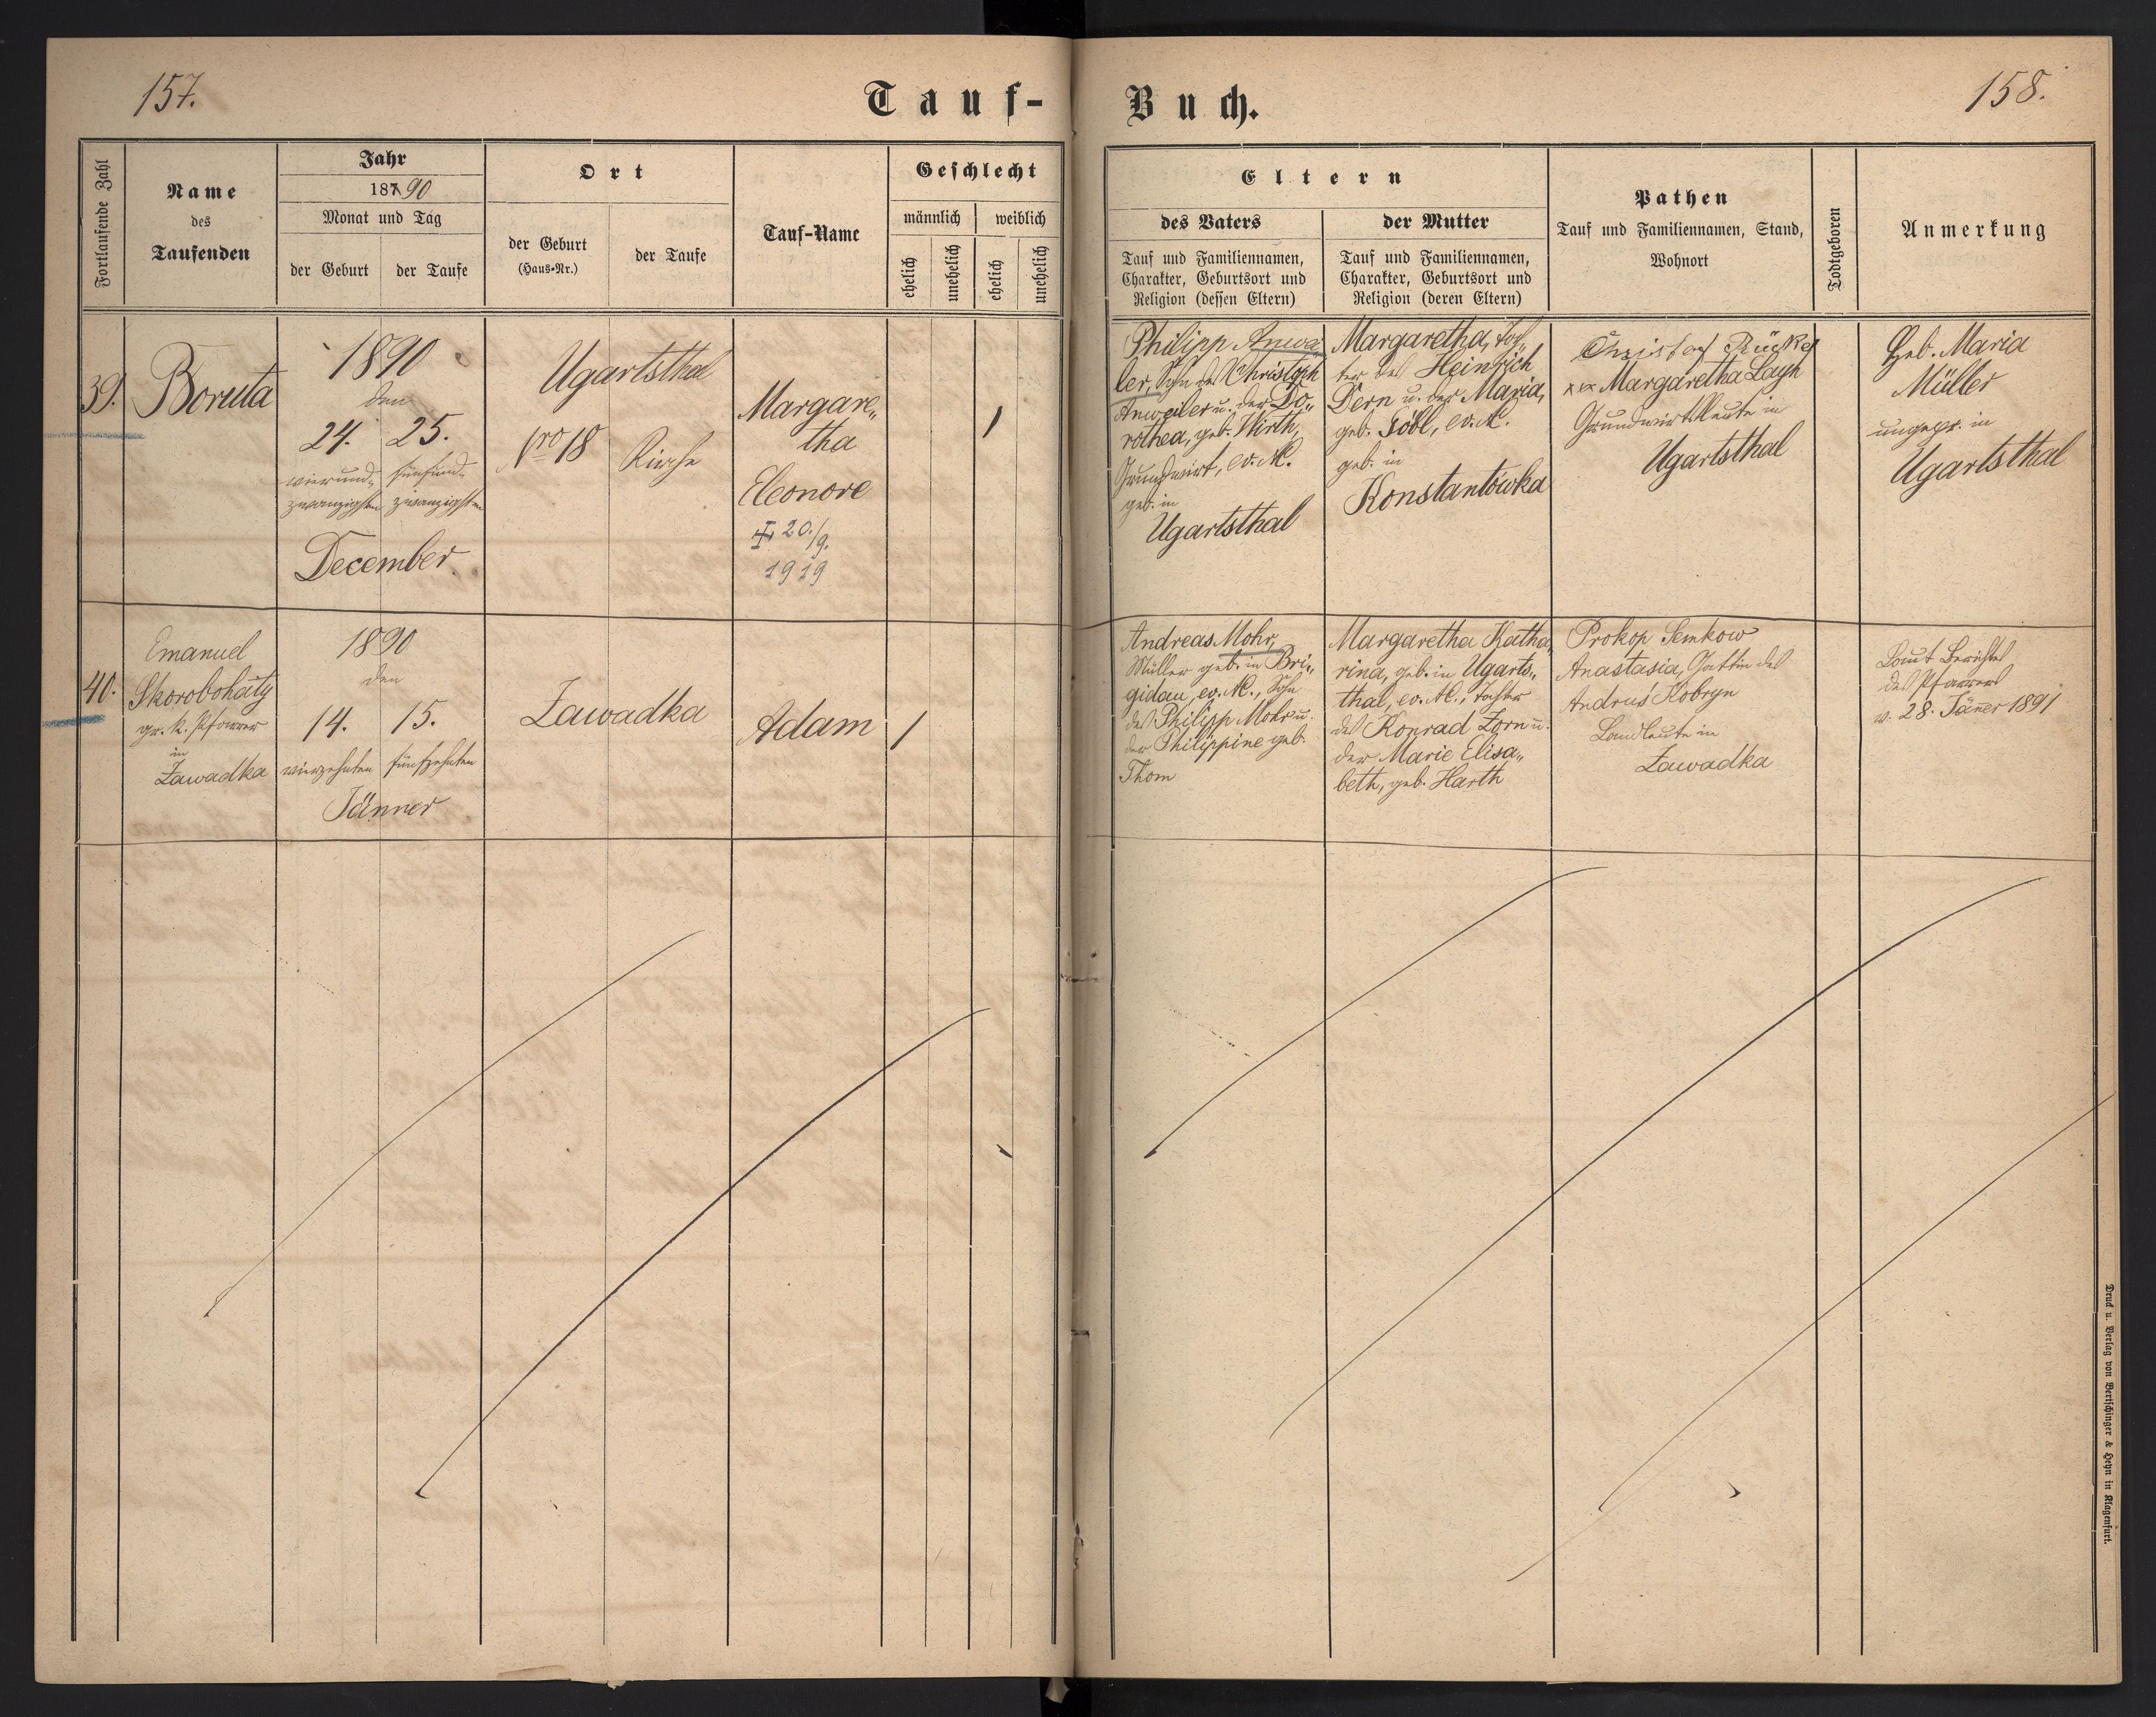 157.
Tauf-
Buch.
158.
Fortlaufende Zahl
Name
des
Taufenden
Jahr
187 90
Monat und Tag
der Geburt
der Taufe
Ort
der Geburt
(Haus-Nr.)
der Taufe
Tauf-Name
Geschlecht
männlich
weiblich
ehelich
unehelich
ehelich
unehelich
Eltern
des Vaters
Tauf und Familiennamen,
Charakter, Geburtsort und
Religion (dessen Eltern)
der Mutter
Tauf und Familiennamen,
Charakter, Geburtsort und
Religion (deren Eltern)
Pathen
Tauf und Familiennamen, Stand,
Wohnort
Todtgeboren
Anmerkung
39.
Boruta
1890
den
24.
25.
vierund-
zwanzigsten
fünfund-
zwanzigsten
December
Ugartsthal
Nro 18
Kirche
Margare„
tha
Eleonore
20./9.
1919
1
Philipp Anwei
ler, Sohn des Christoph
Anweiler u. der Do„
rothea, geb. Wirth,
Grundwirt, ev. A. C.
geb. in
Ugartsthal
Margaretha, Toch„
ter des Heinrich
Dern u. der Maria,
geb. Göbl, ev. A. C.
geb. in
Konstantówka
Christof Rückel
Margaretha Layh
Grundwirtsleute in
Ugartsthal
Heb. Maria
Müller
ungepr. in
Ugartsthal
40.
Emanuel
Skorobohaty
gr. k. Pfarrer
in
Zawadka
1890
den
14.
15.
vierzehnten
fünfzehnten
Jänner
Zawadka
Adam
1
Andreas Mohr,
Müller geb. in Bri„
gidau, ev. A. C., Sohn
des Philipp Mohr u.
der Philippine geb.
Thom
Margaretha Katha„
rina, geb. in Ugarts„
thal, ev. A. C., Tochter
des Konrad Zorn u.
der Marie Elisa„
beth, geb. Harth
Prokop Semkow
Anastasia, Gattin des
Andrus Kobryn
Landleute in
Zawadka
Laut Berichtes
des Pfarrers
v. 28. Jänner 1891
Druck u. Verlag von Bertschinger & Heyn in Klagenfurt.